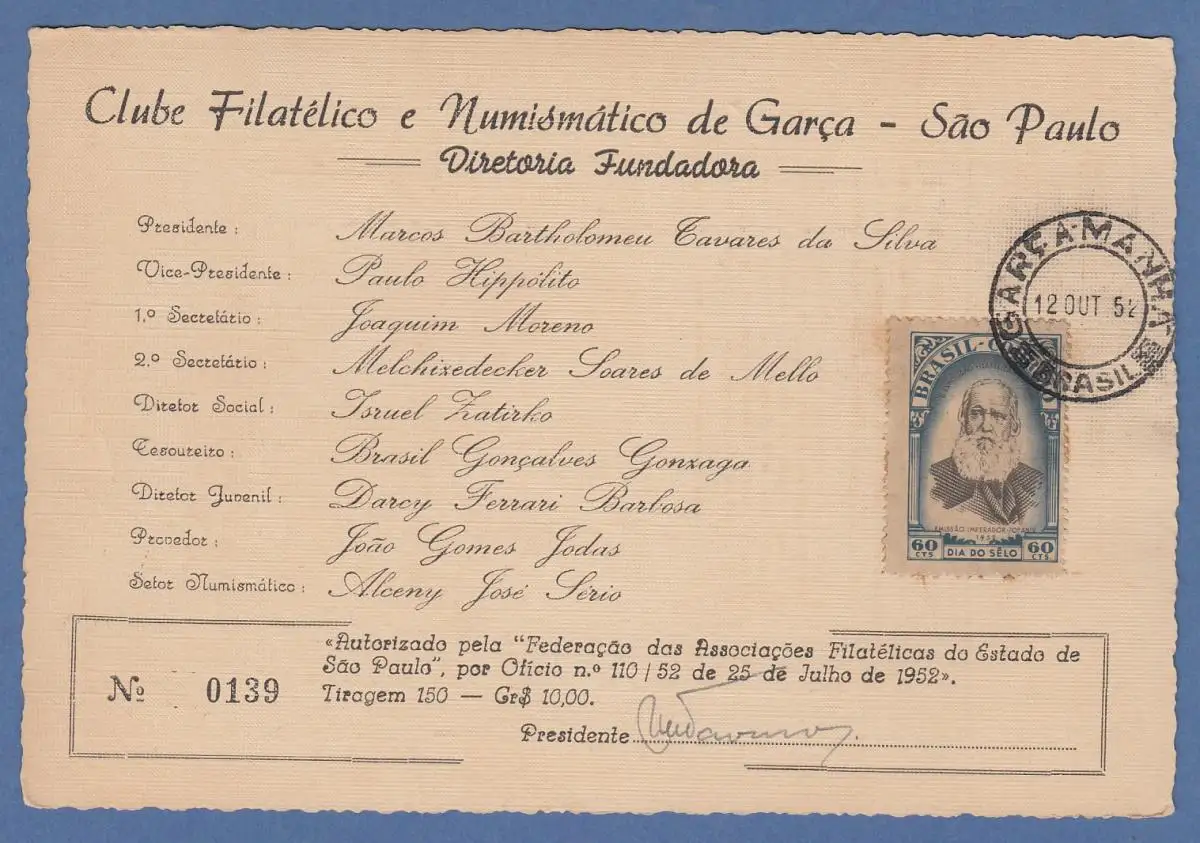 Clube Filatélico e Numismático de Garça - São Paulo
Diretoria Fundadora
Presidente: Marcos Bartholomeu Tavares da Silva
Vice-Presidente: Paulo Hippólito
1.º Secretário: Joaquim Moreno
2.º Secretário: Melchizedecker Soares de Mello
Diretor Social: Isruel Zatirko
Tesoureiro: Brasil Gonçalves Gonzaga
Diretor Juvenil: Darcy Ferrari Barbosa
Provedor: João Gomes Jodas
Setor Numismático: Alceny José Sério
GARÇA-MANHÃ
12 OUT 52
BRASIL
BRASIL-
EMISSÃO IMPERADOR-
1952
60 CTS DIA DO SÊLO 60 CTS
«Autorizado pela "Federação das Associações Filatélicas do Estado de
São Paulo", por Ofício n.º 110/52 de 25 de Julho de 1952».
Nº 0139 Tiragem 150 — Cr$ 10,00.
Presidente